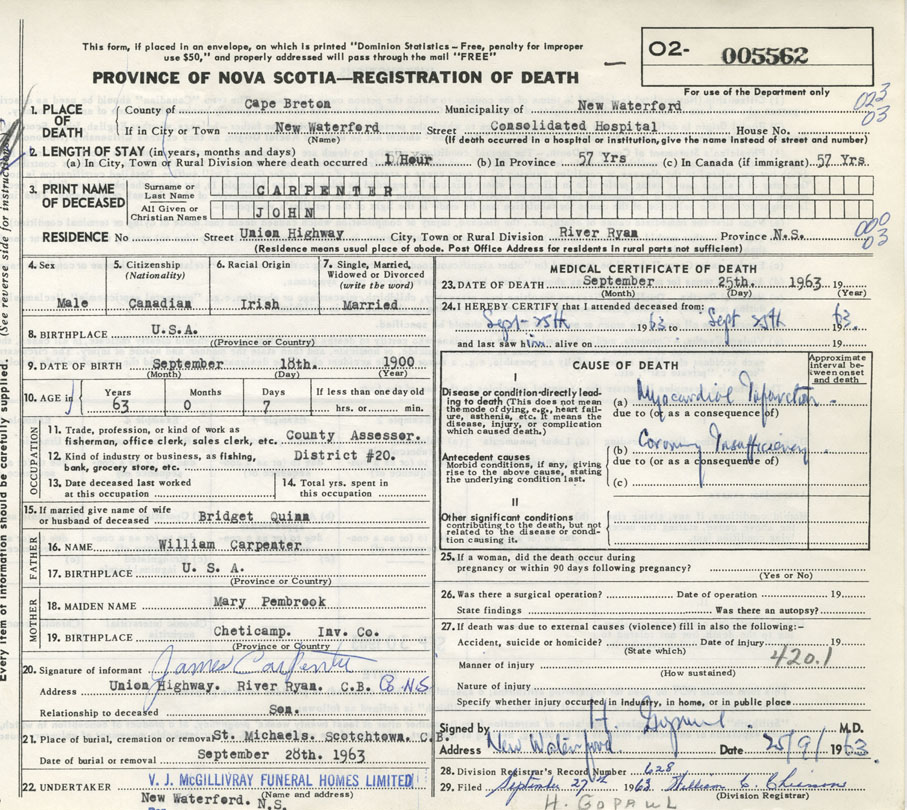 This form, if placed in an envelope, on which is printed "Dominion Statistics – Free, penalty for improper
use $50," and properly addressed will pass through the mail "FREE"
PROVINCE OF NOVA SCOTIA—REGISTRATION OF DEATH
O2- 005562
For use of the Department only
023
03
1. PLACE OF DEATH
County of Cape Breton Municipality of New Waterford
If in City or Town New Waterford Street Consolidated Hospital House No.
(Name) (If death occurred in a hospital or institution, give the name instead of street and number)
2. LENGTH OF STAY (in years, months and days)
(a) In City, Town or Rural Division where death occurred 1 Hour (b) In Province 57 Yrs (c) In Canada (if immigrant) 57 Yrs.
3. PRINT NAME OF DECEASED
Surname or Last Name CARPENTER
All Given or Christian Names JOHN
000
03
RESIDENCE No Street Union Highway City, Town or Rural Division River Ryan Province N.S.
(Residence means usual place of abode. Post Office Address for residents in rural parts not sufficient)
4. Sex Male
5. Citizenship (Nationality) Canadian
6. Racial Origin Irish
7. Single, Married, Widowed or Divorced (write the word) Married
8. BIRTHPLACE U.S.A.
(Province or Country)
9. DATE OF BIRTH September 18th. 1900
(Month) (Day) (Year)
10. AGE in Years 63 Months 0 Days 7 If less than one day old hrs. or min.
OCCUPATION
11. Trade, profession, or kind of work as fisherman, office clerk, sales clerk, etc. County Assessor.
12. Kind of industry or business, as fishing, bank, grocery store, etc. District #20.
13. Date deceased last worked at this occupation
14. Total yrs. spent in this occupation
15. If married give name of wife or husband of deceased Bridget Quinn
FATHER
16. NAME William Carpenter
17. BIRTHPLACE U. S. A.
(Province or Country)
MOTHER
18. MAIDEN NAME Mary Pembrook
19. BIRTHPLACE Cheticamp. Inv. Co.
(Province or Country)
20. Signature of informant James Carpenter
Address Union Highway. River Ryan. C.B. N.S
Relationship to deceased Son.
21. Place of burial, cremation or removal St. Michaels. Scotchtown. C.B.
Date of burial or removal September 28th. 1963
22. UNDERTAKER V. J. McGILLIVRAY FUNERAL HOMES LIMITED
(Name and address)
New Waterford. N.S.
MEDICAL CERTIFICATE OF DEATH
23. DATE OF DEATH September 25th. 1963 19
(Month) (Day) (Year)
24. I HEREBY CERTIFY that I attended deceased from:
Sept-25th 1963 to Sept 25th 63
and last saw him alive on 19
CAUSE OF DEATH
Approximate interval between onset and death
I
Disease or condition directly leading to death (This does not mean the mode of dying, e.g., heart failure, asthenia, etc. It means the disease, injury, or complication which caused death.)
(a) Myocardial Infarction
due to (or as a consequence of)
(b) Coronary Insufficiency
due to (or as a consequence of)
(c)
Antecedent causes
Morbid conditions, if any, giving rise to the above cause, stating the underlying condition last.
II
Other significant conditions contributing to the death, but not related to the disease or condition causing it.
25. If a woman, did the death occur during
pregnancy or within 90 days following pregnancy?
(Yes or No)
26. Was there a surgical operation? Date of operation 19
State findings Was there an autopsy?
27. If death was due to external causes (violence) fill in also the following:-
Accident, suicide or homicide? Date of injury 19
(State which)
420.1
Manner of injury
(How sustained)
Nature of injury
Specify whether injury occurred in Industry, in home, or in public place
Signed by H Gopaul M.D.
Address New Waterford Date 25/9/ 1963
28. Division Registrar's Record Number 628
29. Filed September 27th 1963 William C.
(Division Registrar)
H. GOPAUL
Every item of information should be carefully supplied. (See reverse side for instruc